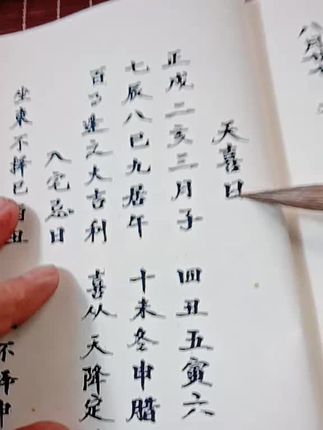 八月
天喜日
正戌二亥三月子 四丑五寅六
七辰八巳九居午 十未冬申腊
百事逢之大吉利 喜从天降定
入宅忌日
坐東不择巳酉丑 不择申